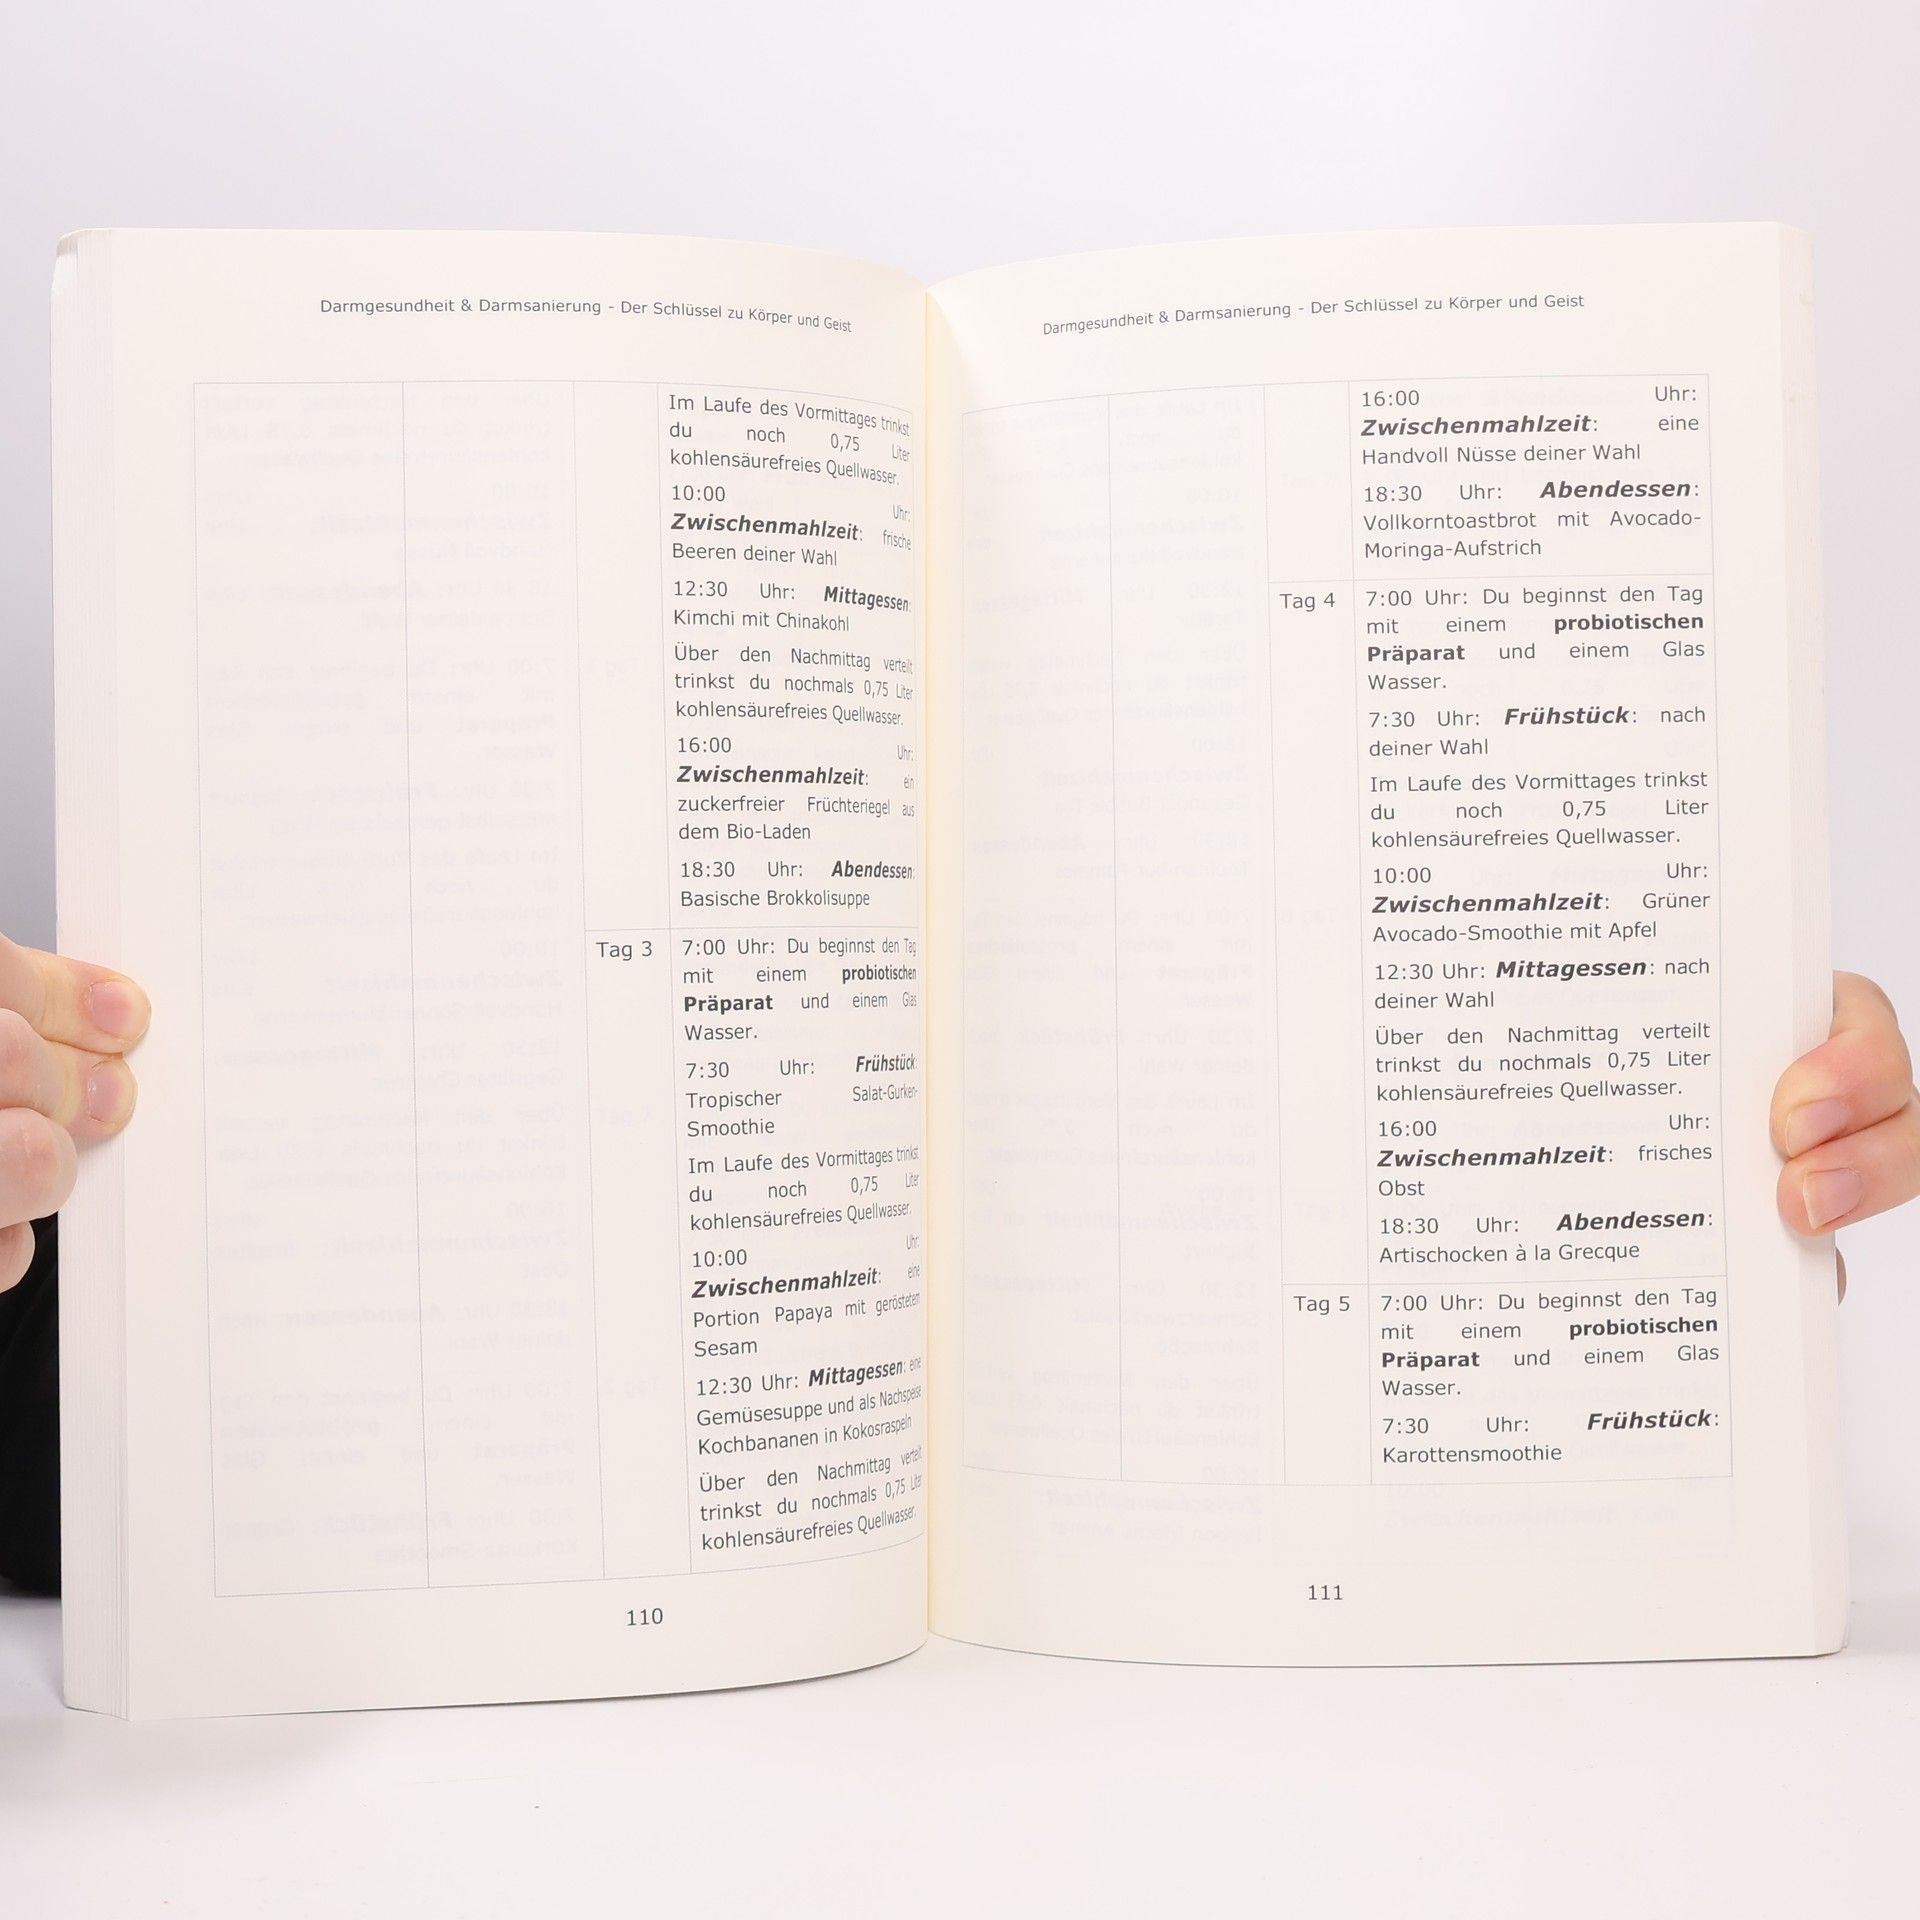 Darmgesundheit & Darmsanierung - Der Schlüssel zu Körper und Geist
Im Laufe des Vormittages trinkst
du noch 0,75 Liter
kohlensäurefreies Quellwasser.
10:00 Uhr:
Zwischenmahlzeit: frische
Beeren deiner Wahl
12:30 Uhr: Mittagessen:
Kimchi mit Chinakohl
Über den Nachmittag verteilt
trinkst du nochmals 0,75 Liter
kohlensäurefreies Quellwasser.
16:00 Uhr:
Zwischenmahlzeit: ein
zuckerfreier Früchteriegel aus
dem Bio-Laden
18:30 Uhr: Abendessen:
Basische Brokkolisuppe
Tag 3 7:00 Uhr: Du beginnst den Tag
mit einem probiotischen
Präparat und einem Glas
Wasser.
7:30 Uhr: Frühstück:
Tropischer Salat-Gurken-
Smoothie
Im Laufe des Vormittages trinkst
du noch 0,75 Liter
kohlensäurefreies Quellwasser.
10:00 Uhr:
Zwischenmahlzeit: eine
Portion Papaya mit geröstetem
Sesam
12:30 Uhr: Mittagessen: eine
Gemüsesuppe und als Nachspeise
Kochbananen in Kokosraspeln
Über den Nachmittag verteilt
trinkst du nochmals 0,75 Liter
kohlensäurefreies Quellwasser.
110
Darmgesundheit & Darmsanierung - Der Schlüssel zu Körper und Geist
16:00 Uhr:
Zwischenmahlzeit: eine
Handvoll Nüsse deiner Wahl
18:30 Uhr: Abendessen:
Vollkorntoastbrot mit Avocado-
Moringa-Aufstrich
Tag 4 7:00 Uhr: Du beginnst den Tag
mit einem probiotischen
Präparat und einem Glas
Wasser.
7:30 Uhr: Frühstück: nach
deiner Wahl
Im Laufe des Vormittages trinkst
du noch 0,75 Liter
kohlensäurefreies Quellwasser.
10:00 Uhr:
Zwischenmahlzeit: Grüner
Avocado-Smoothie mit Apfel
12:30 Uhr: Mittagessen: nach
deiner Wahl
Über den Nachmittag verteilt
trinkst du nochmals 0,75 Liter
kohlensäurefreies Quellwasser.
16:00 Uhr:
Zwischenmahlzeit: frisches
Obst
18:30 Uhr: Abendessen:
Artischocken à la Grecque
Tag 5 7:00 Uhr: Du beginnst den Tag
mit einem probiotischen
Präparat und einem Glas
Wasser.
7:30 Uhr: Frühstück:
Karottensmoothie
111